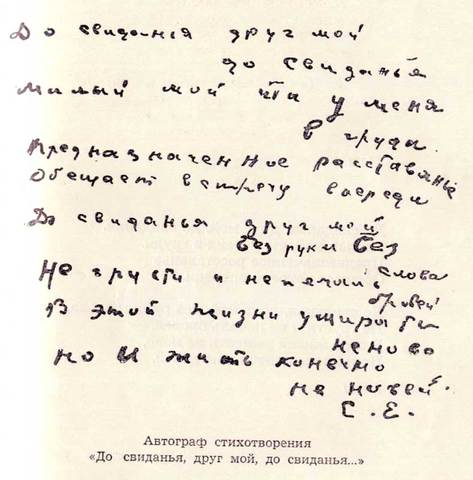 До свиданья друг мой
до свиданья
милый мой ты у меня
в груди.
Предназначенное расставанье
Обещает встречу впереди
До свиданья друг мой
без руки без
слова
Не грусти и не печаль
бровей
В этой жизни умирать
не ново
но и жить конечно
не новей.
С. Е.
Автограф стихотворения
«До свиданья, друг мой, до свиданья...»